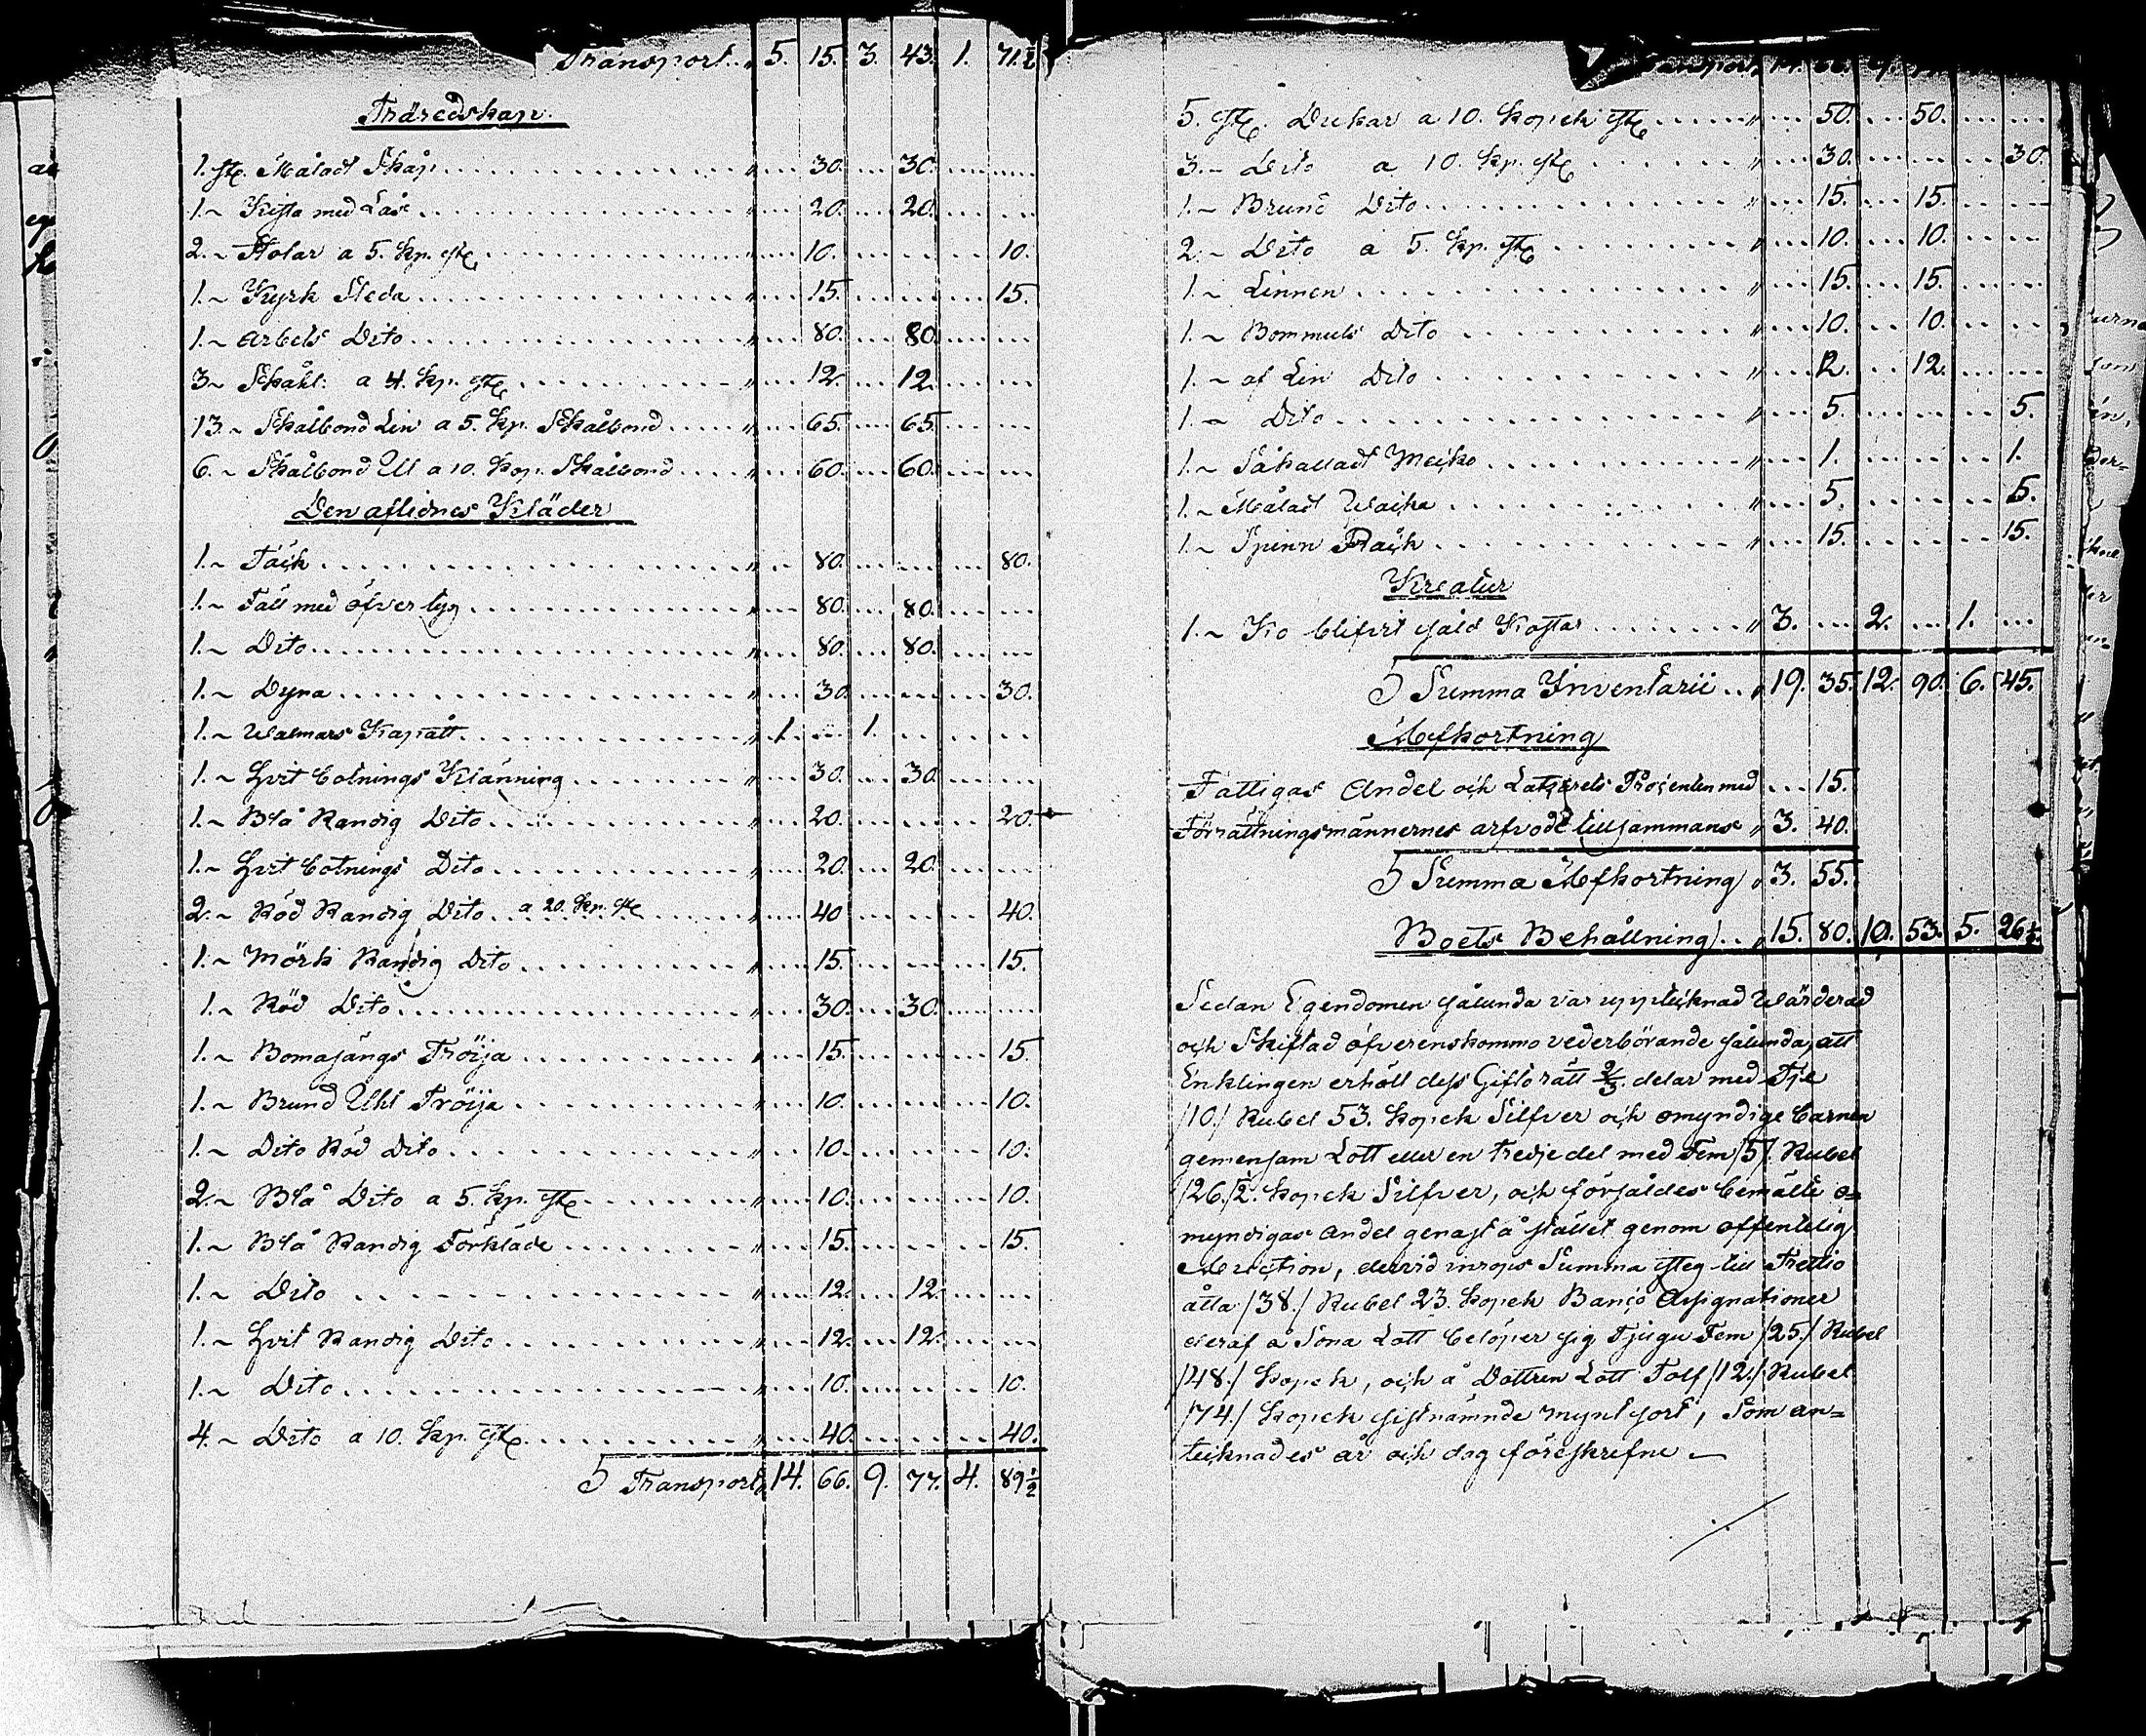 Transport.. „ 5. 15. 3. 43. 1. 71½
Träredskap.
1. st. Måladt Skåp „ 30. 30.
1. „ Kista med Lås „ 20. 20.
2. „ Stolar a 5. kp. st. „ 10. 10.
1. „ Kyrk Sleda „ 15. 15.
1. „ Arbets Dito „ 80. 80.
3. „ Skähl: a 4. kp. st. „ 12. 12.
13. „ Skålbond Lin a 5. kp. Skålbond „ 65. 65.
6. „ Skålbond Ull a 10. kop. Skålbond „ 60. 60.
Den aflidnes Kläder
1. „ Täck „ 80. 80.
1. „ Fäll med öfvertyg „ 80. 80.
1. „ Dito „ 80. 80.
1. „ Dyna „ 30. 30.
1. „ Walmars Kaprått „ 1. 1.
1. „ Hvit Botnings Klänning „ 30. 30.
1. „ Blå Randig Dito „ 20. 20.
1. „ Hvit Botnings Dito „ 20. 20.
2. „ Röd Randig Dito a 20. kp. st. „ 40 40.
1. „ Mörk Randig Dito „ 15. 15.
1. „ Röd Dito „ 30. 30.
1. „ Bomasängs Tröija „ 15. 15.
1. „ Brund Ulht Tröija „ 10. 10.
1. „ Dito Röd Dito „ 10. 10.
2. „ Blå Dito a 5. kp. st. „ 10. 10.
1. „ Blå Randig Förkläde „ 15. 15.
1. „ Dito „ 12. 12.
1. „ Hvit Randig Dito „ 12. 12.
1. „ Dito „ 10. 10.
4. „ Dito a 10. kp. st. „ 40. 40.
Transport „ 14. 66. 9. 77. 4. 89½
5. st. Dukar a 10. kopek st. „ 50. 50.
3. „ Dito a 10. kp. st. „ 30. 30.
1. „ Brund Dito „ 15. 15.
2. „ Dito a 5. kp. st. „ 10. 10.
1. „ Linnen „ 15. 15.
1. „ Bommuls Dito „ 10. 10.
1. „ af Lin Dito „ 12. 12.
1. „ Dito „ 5. 5.
1. „ Såkalladt „ 1. 1.
1. „ Måladt „ 5. 5.
1. „ Spinn „ 15. 15.
Kreatur
1. „ Ko blifvit såld Kostar „ 3. 2. 1.
Summa Inventarii .. „ 19. 35. 12. 90. 6. 45.
Afkortning
Fattigas Andel och Latzarets Procenten med 15.
Förrättningsmännernes arfvode tillsammans „ 3. 40.
Summa Afkortning „ 3. 55.
Boets Behållning .. „ 15. 80. 10. 53. 5. 26½.
Sedan Egendomen sålunda var uppteknad Wärderad
och Skiftad öfverenskommo vederbörande sålunda, att
Enklingen erhöll dess Giftorätt 2/3 delar med Tje
/10./ Rubel 53. kopek Silfver och omyndige barnen
gemensam Lott eller en tredje del med Fem /5/. Rubel
/26./½. kopek Silfver, och försåldes bemälte o=
myndigas andel genast å stället genom offentelig
Auction, dervid inrops Summa steg till Trettio
åtta /38./ Rubel 23. kopek Banco Assignationer
deraf å Sona Lott belöper sig Tjugu Fem /25./ Rubel
/48./ kopek, och å Dottren Lott Tolf /12./ Rubel
/74./ kopek sistnämnde mynt sort, Som an=
tecknades år och dag föreskrefne —